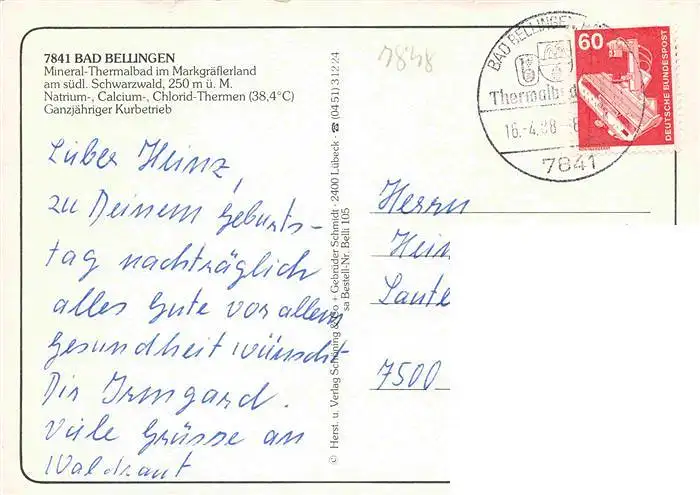 7841 BAD BELLINGEN
Mineral-Thermalbad im Markgräflerland
am südl. Schwarzwald, 250 m ü. M.
Natrium-, Calcium-, Chlorid-Thermen (38,4°C)
Ganzjähriger Kurbetrieb
Lieber Heinz,
zu Deinem Geburts-
tag nachträglich
alles Gute vor allem
Gesundheit wünscht
Dir Irmgard.
Viele Grüsse an
Waldraut
© Herst. u. Verlag Schöning & Co + Gebrüder Schmidt · 2400 Lübeck · ☎ (04 51) 3 12 24
sa Bestell-Nr. Belli 105
BAD BELLINGEN
Thermalbad
16.-4.88
7841
60
DEUTSCHE BUNDESPOST
Herrn
Hein
Laute
7500